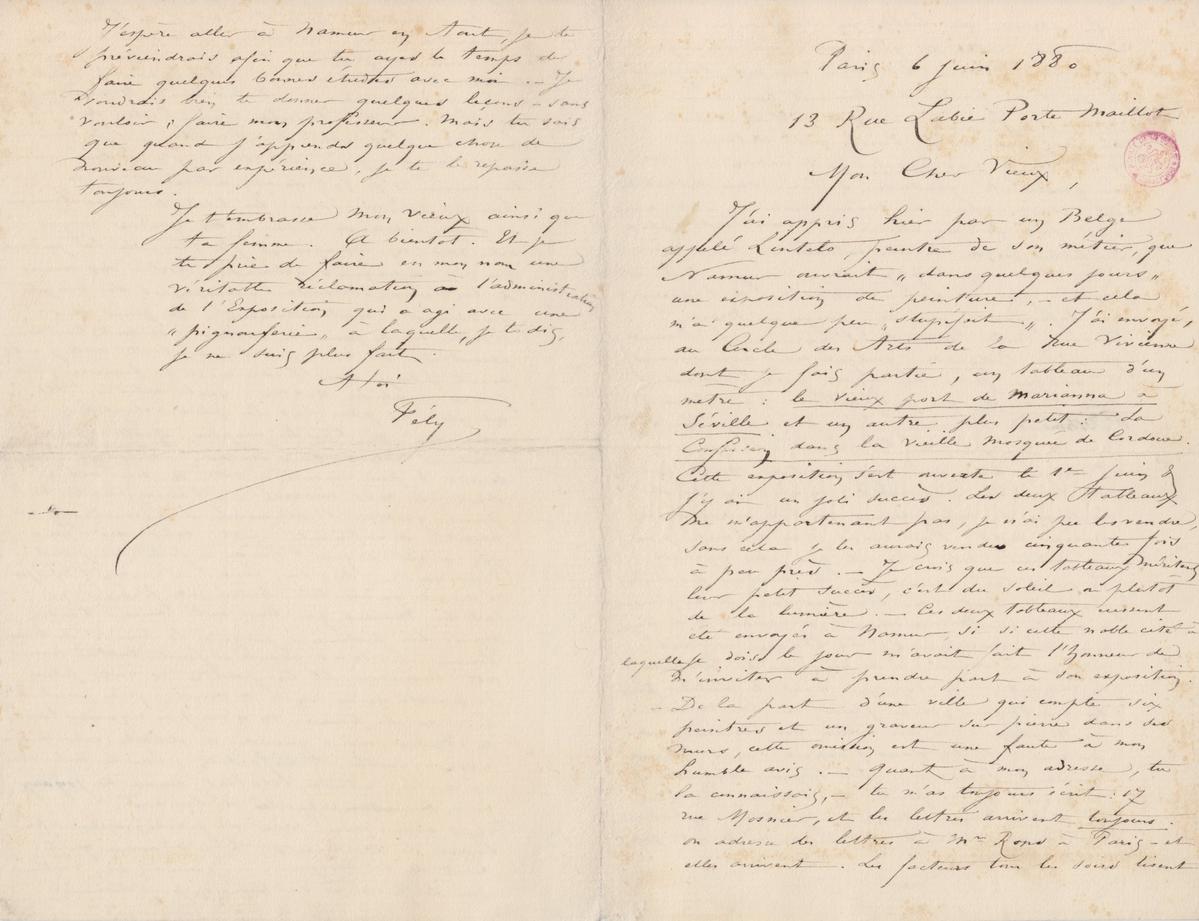 Paris 6 Juin 1880
13 Rue Labie Porte Maillot
Mon Cher Vieux,
J'ai appris hier par un Belge
appelé Lintelo, peintre de son métier, que
Namur ouvrait „dans quelques jours„
une exposition de peinture, – et cela
m'a quelque peu „stupéfait„. J'ai envoyé,
au Cercle des Arts de la Rue Vivienne
dont je fais partie, un tableau d'un
mètre : le vieux port de Marianna à
Séville et un autre plus petit : La
Confession dans la vieille mosquée de Cordoue.
Cette exposition s'est ouverte le 1er Juin &
j'y ai un joli succès. Les deux tableaux
ne m'appartenant pas, je n'ai pu les vendre,
sans cela je les aurais vendus cinquante fois
à peu près. – Je crois que ces tableaux méritent
leur petit succès, c'est du soleil ou plutôt
de la lumière. – Ces deux tableaux eussent
été envoyés à Namur, si si cette noble cité à
laquelle je dois le jour m'avait fait l'honneur de
m'inviter à prendre part à son exposition.
– De la part d'une ville qui compte six
peintres et un graveur sur pierre dans ses
murs, cette omission est une faute à mon
humble avis. – Quant à mon adresse, tu
la connaissais, – tu m'as toujours écrit : 17
rue Mosnier, et les lettres arrivent toujours.
on adresse des lettres à Mr Rops à Paris – et
elles arrivent. Les facteurs tous les soirs lisent
J'espère aller à Namur en Août, je te
préviendrais afin que tu ayes le temps de
faire quelques bonnes études avec moi. – Je
voudrais bien te donner quelques leçons – sans
vouloir faire mon professeur. Mais tu sais
que quand j'apprends quelque chose de
nouveau par expérience, je te le repasse
toujours.
Je t'embrasse mon vieux ainsi que
ta femme. A bientôt. Et je
te prie de faire en mon nom une
véritable réclamation à l'administration
de l'Exposition qui a agi avec une
„pignouferie„ à laquelle, je te dis,
je ne suis plus fait.
A toi
Fély